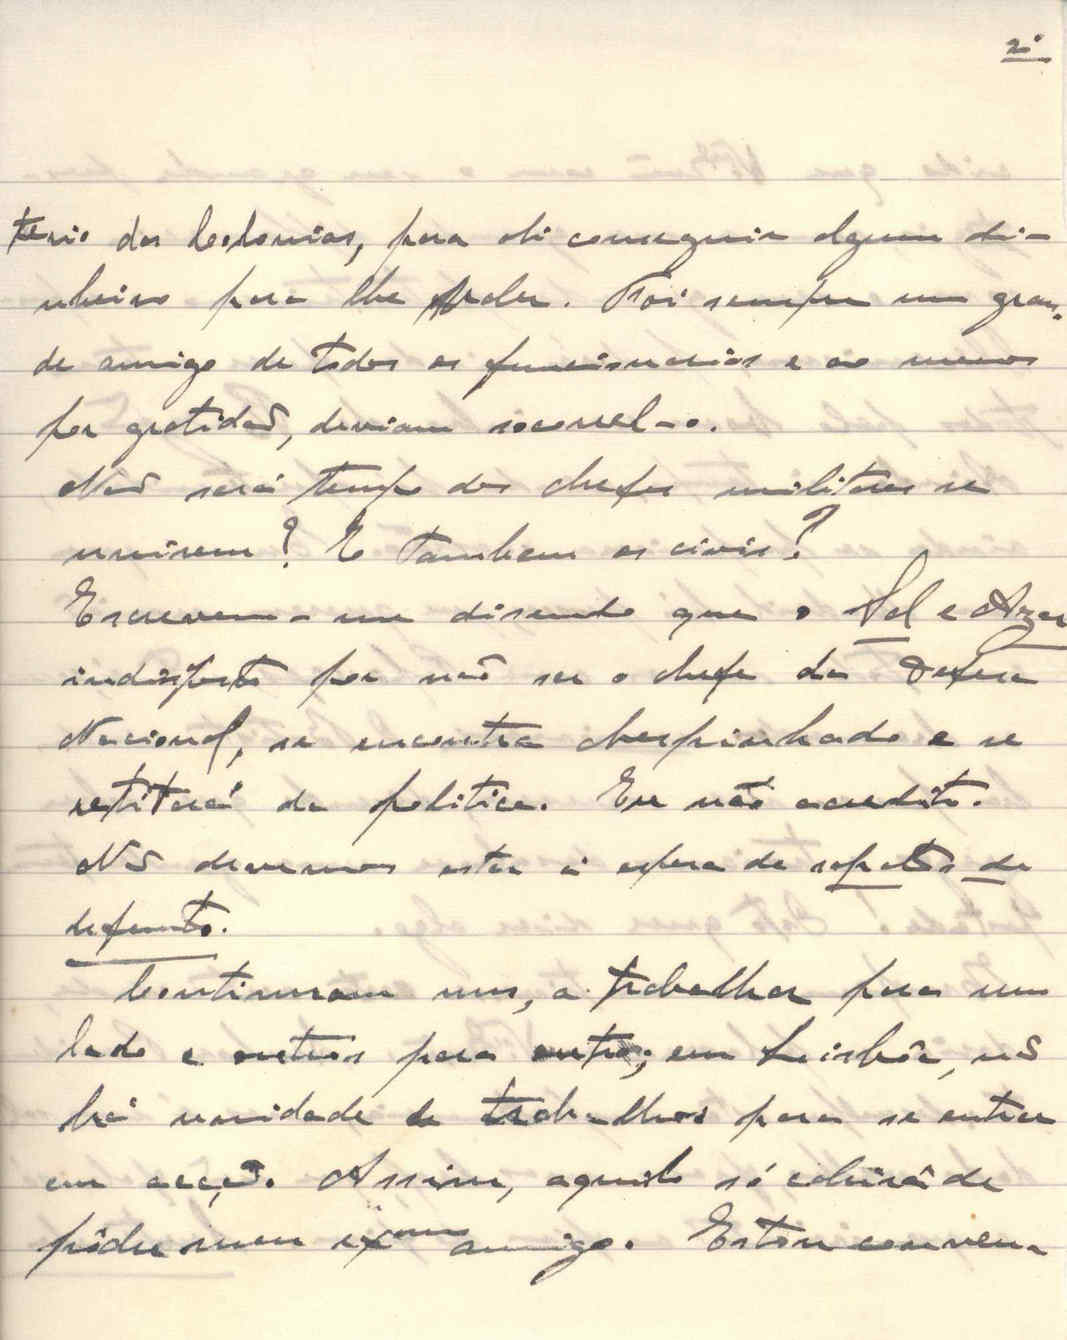 2º
terio das Colonias, para ali conseguir algum di-
nheiro para lhe poder. Foi sempre um gran-
de amigo de todos os funcionarios e ao menos
por gratidaõ, deviam socorrel-o.
Naõ será tempo dos chefes militares se
unirem? E tambem os civis?
Escrevem-me disendo que o Sol e Azar
indisposto por não ser o chefe da Defesa
Nacional, se encontra abespinhado e se
retirará da politica. Eu não acredito.
Nõ devemos estar á espera de sapatos de
defunto.
Continuam uns, a trabalhar para um
lado e outros para outro; em Leisbôa, nõ
há unidade de trabalhos para se entrar
em acção. Assim, aquilo só cahirá de
pôdre meu exmo amigo. Estou conven-